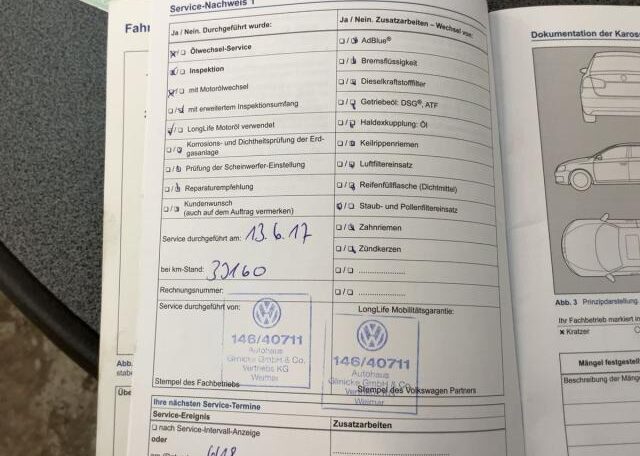 Service-Nachweis 1
Fahr
Ja / Nein. Durchgeführt wurde:
Ölwechsel-Service
Inspektion
mit Motorölwechsel
mit erweitertem Inspektionsumfang
LongLife Motoröl verwendet
Korrosions- und Dichtheitsprüfung der Erd-
gasanlage
Prüfung der Scheinwerfer-Einstellung
Reparaturempfehlung
Kundenwunsch
(auch auf dem Auftrag vermerken)
Service durchgeführt am: 13.6.17
bei km-Stand:
Rechnungsnummer:
Service durchgeführt von:
146/40711
Autohaus
Glinicke GmbH & Co.
Vertriebs KG
Weimar
Stempel des Fachbetriebs
Ja / Nein. Zusatzarbeiten – Wechsel von:
AdBlue®
Bremsflüssigkeit
Dieselkraftstofffilter
Getriebeöl: DSG®, ATF
Haldexkupplung: Öl
Keilrippenriemen
Luftfiltereinsatz
Reifenfüllflasche (Dichtmittel)
Staub- und Pollenfiltereinsatz
Zahnriemen
Zündkerzen
LongLife Mobilitätsgarantie:
146/40711
Autohaus
Glinicke GmbH & Co.
Weimar
Stempel des Volkswagen Partners
Ihre nächsten Service-Termine
Service-Ereignis
Zusatzarbeiten
nach Service-Intervall-Anzeige
oder
6/18
Abb.
Übe
Dokumentation der Karos
Abb. 3 Prinzipdarstellung.
Ihr Fachbetrieb markiert in
Kratzer
Mängel festgestell
Beschreibung der Mänge